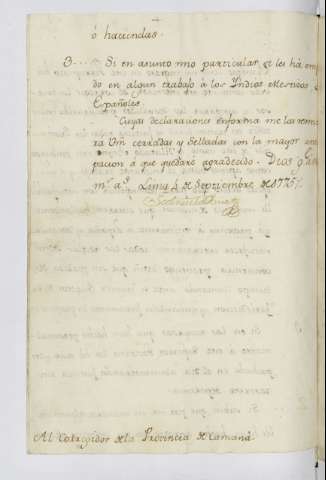 ó haciendas.
3.... Si en asunto mio particular se les há ocupa
do en algun trabajo á los Indios Mestizos ó
Españoles.
Cuyas declaraciones en forma me las remi
tirá Vm cerradas y Selladas con la mayor
pacion á que quedaré agradecido. Dios g.e á Vm
m.s a.s Lima 4 de Septiembre de 1776.
Al Corregidor de la Provincia de Camaná